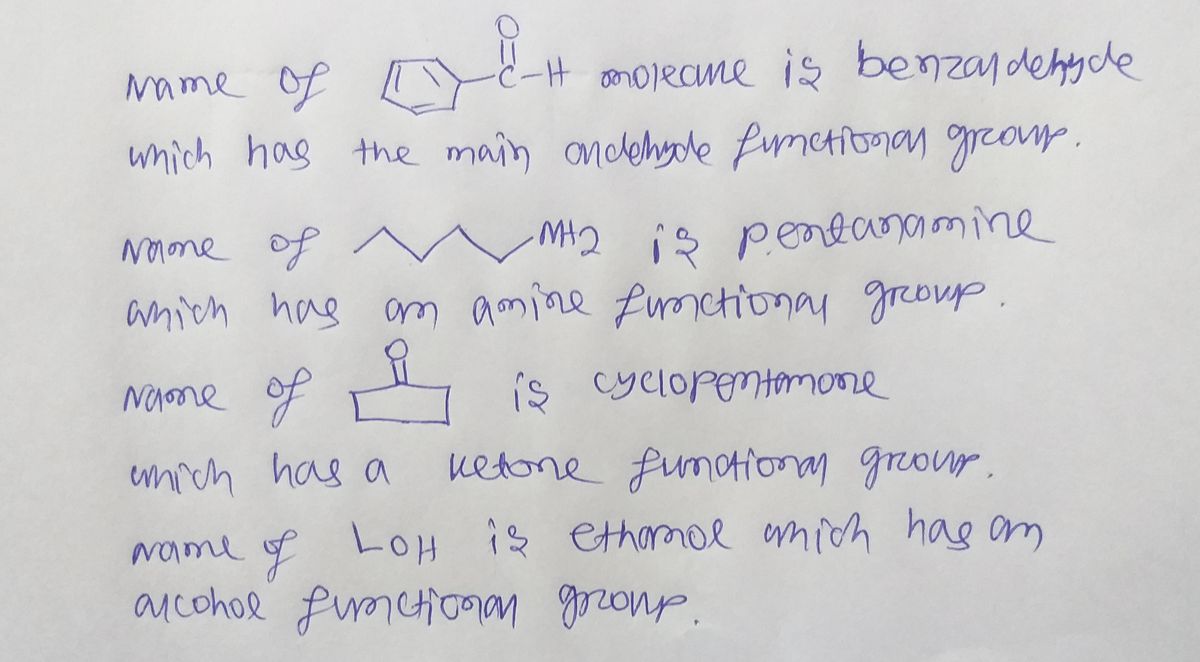 Name of O C-H molecule is benzaldehyde
which has the main aldehyde functional group.
Name of NH2 is pentanamine
which has an amine functional group.
Name of O is cyclopentanone
which has a ketone functional group.
name of LOH is ethanol which has an
alcohol functional group.